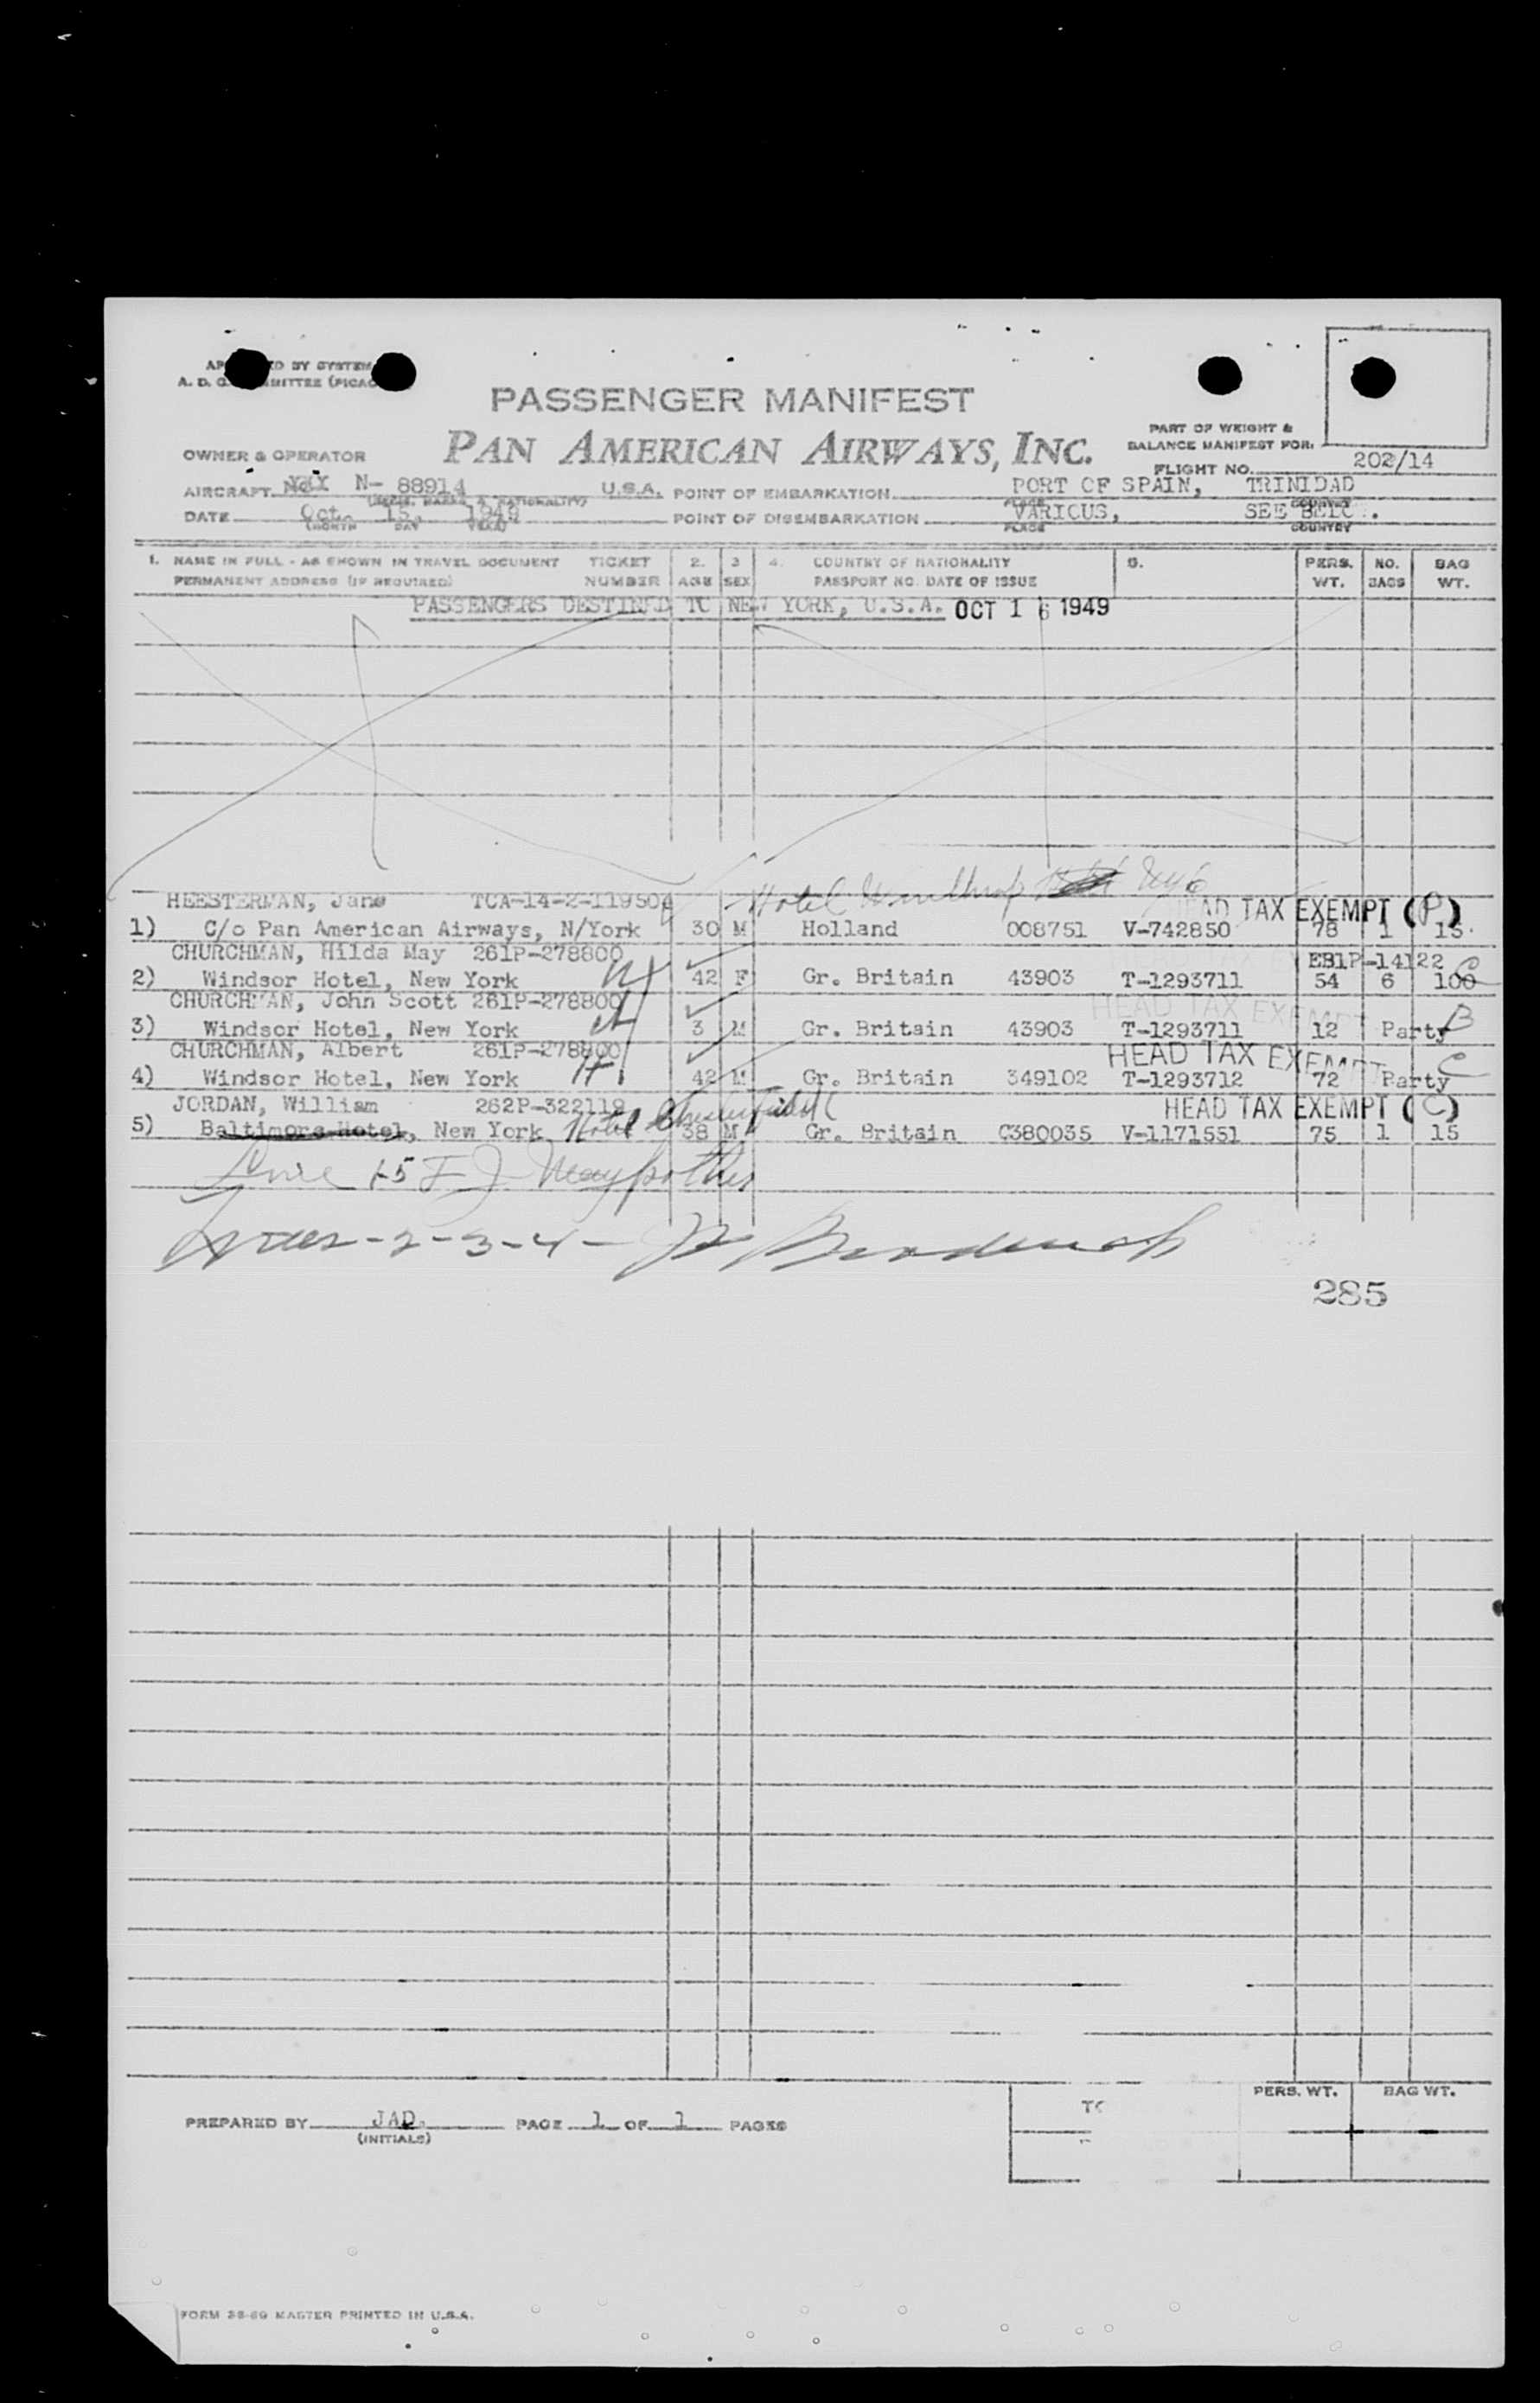 BY SYSTEM
PASSENGER MANIFEST
PAN AMERICAN AIRWAYS, INC.
PART OF WEIGHT &
BALANCE MANIFEST FOR:
OWNER & OPERATOR
FLIGHT NO. 202/14
AIRCRAFT N- 88914 U.S.A. POINT OF EMBARKATION PORT OF SPAIN, TRINIDAD
DATE Oct. 15, 1949 POINT OF DISEMBARKATION VARIOUS, SEE
MONTH DAY YEAR PLACE COUNTRY
1. NAME IN FULL - AS SHOWN IN TRAVEL DOCUMENT TICKET 2. 3 4. COUNTRY OF NATIONALITY 5. PERS. NO. BAG
PERMANENT ADDRESS (IF REQUIRED) NUMBER AGE SEX PASSPORT NO. DATE OF ISSUE WT. BAGS WT.
PASSENGERS DESTINED TO NEW YORK, U.S.A. OCT 16 1949
Hotel Winthrop
HEESTERMAN, Jane TCA-14-2-119504 HEAD TAX EXEMPT (P)
1) C/o Pan American Airways, N/York 30 M Holland 008751 V-742850 78 1 15
CHURCHMAN, Hilda May 261P-278800 EB1P-14122
2) Windsor Hotel, New York 42 F Gr. Britain 43903 T-1293711 54 6 100 C
CHURCHMAN, John Scott 261P-278800 HEAD TAX EXEMPT
3) Windsor Hotel, New York 3 M Gr. Britain 43903 T-1293711 12 Party B
CHURCHMAN, Albert 261P-278800 HEAD TAX EXEMPT C
4) Windsor Hotel, New York 42 M Gr. Britain 349102 T-1293712 72 Party
JORDAN, William 262P-322119 HEAD TAX EXEMPT (C)
5) Baltimore Hotel, New York Hotel Chesterfield 38 M Gr. Britain C380035 V-1171551 75 1 15
Line 1-5 F J
Lines-2-3-4-
285
PERS. WT. BAG WT.
PREPARED BY JAD. PAGE 1 OF 1 PAGES
(INITIALS)
FORM 38-69 MASTER PRINTED IN U.S.A.